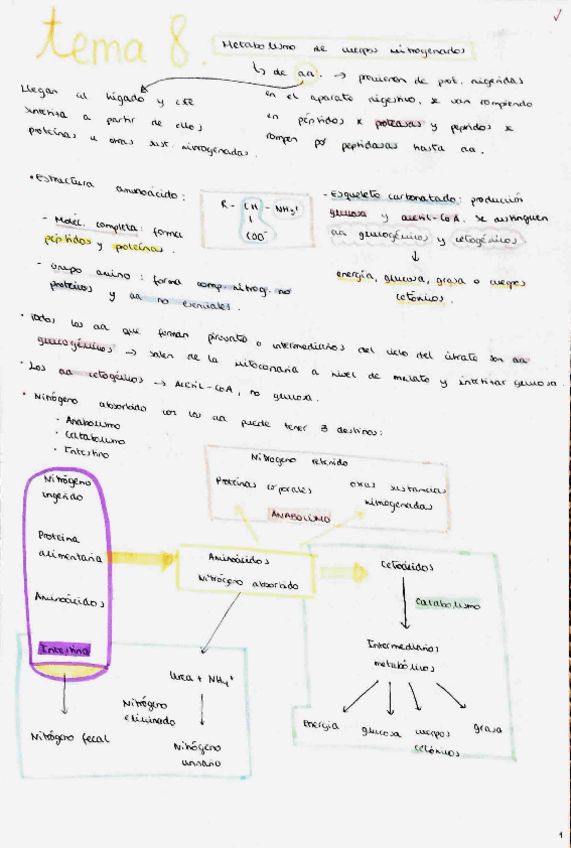 tema 8.
Metabolismo de cuerpos nitrogenados
↳ de aa. → provienen de prot. ingeridas
en el aparato digestivo, se van rompiendo
en péptidos x proteasas y peptidos se
rompen por peptidasas hasta aa.
Llegan al hígado y este
sintetiza a partir de ellos
proteínas u otras sust. nitrogenadas.
• Estructura aminoácido:
R - CH - NH3+
|
COO-
- Moléc. completa: forma
péptidos y proteínas.
- Grupo amino: forma comp. nitrog. no
proteicos y aa no esenciales.
- Esqueleto carbonatado: producción
glucosa y acetil-CoA. Se distinguen
aa glucogénicos y cetogénicos
↓
energía, glucosa, grasa o cuerpos
cetónicos.
• Todos los aa que forman piruvato o intermediarios del ciclo del citrato son aa
glucogénicos → salen de la mitocondria a nivel de malato y sintetizar glucosa.
• Los aa cetogénicos → Acetil-CoA, no glucosa.
• Nitrógeno absorbido con los aa puede tener 3 destinos:
• Anabolismo
• Catabolismo
• Intestino
Nitrógeno retenido
Proteínas corporales
otras sustancias
nitrogenadas
ANABOLISMO
Nitrógeno
ingerido
Proteína
alimentaria
Aminoácidos
Intestino
Aminoácidos
Nitrógeno absorbido
Cetoácidos
Catabolismo
Intermediarios
metabólicos
Energía
glucosa
cuerpos
cetónicos
grasa
Urea + NH4+
Nitrógeno
eliminado
Nitrógeno fecal
Nitrógeno
urinario
1